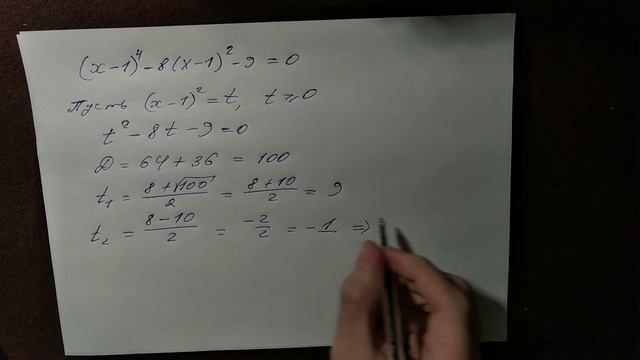 (x-1)⁴ - 8(x-1)² - 9 = 0
Пусть (x-1)² = t, t ⩾ 0
t² - 8t - 9 = 0
D = 64 + 36 = 100
t₁ = (8 + √100)/2 = (8 + 10)/2 = 9
t₂ = (8 - 10)/2 = -2/2 = -1 ⇒